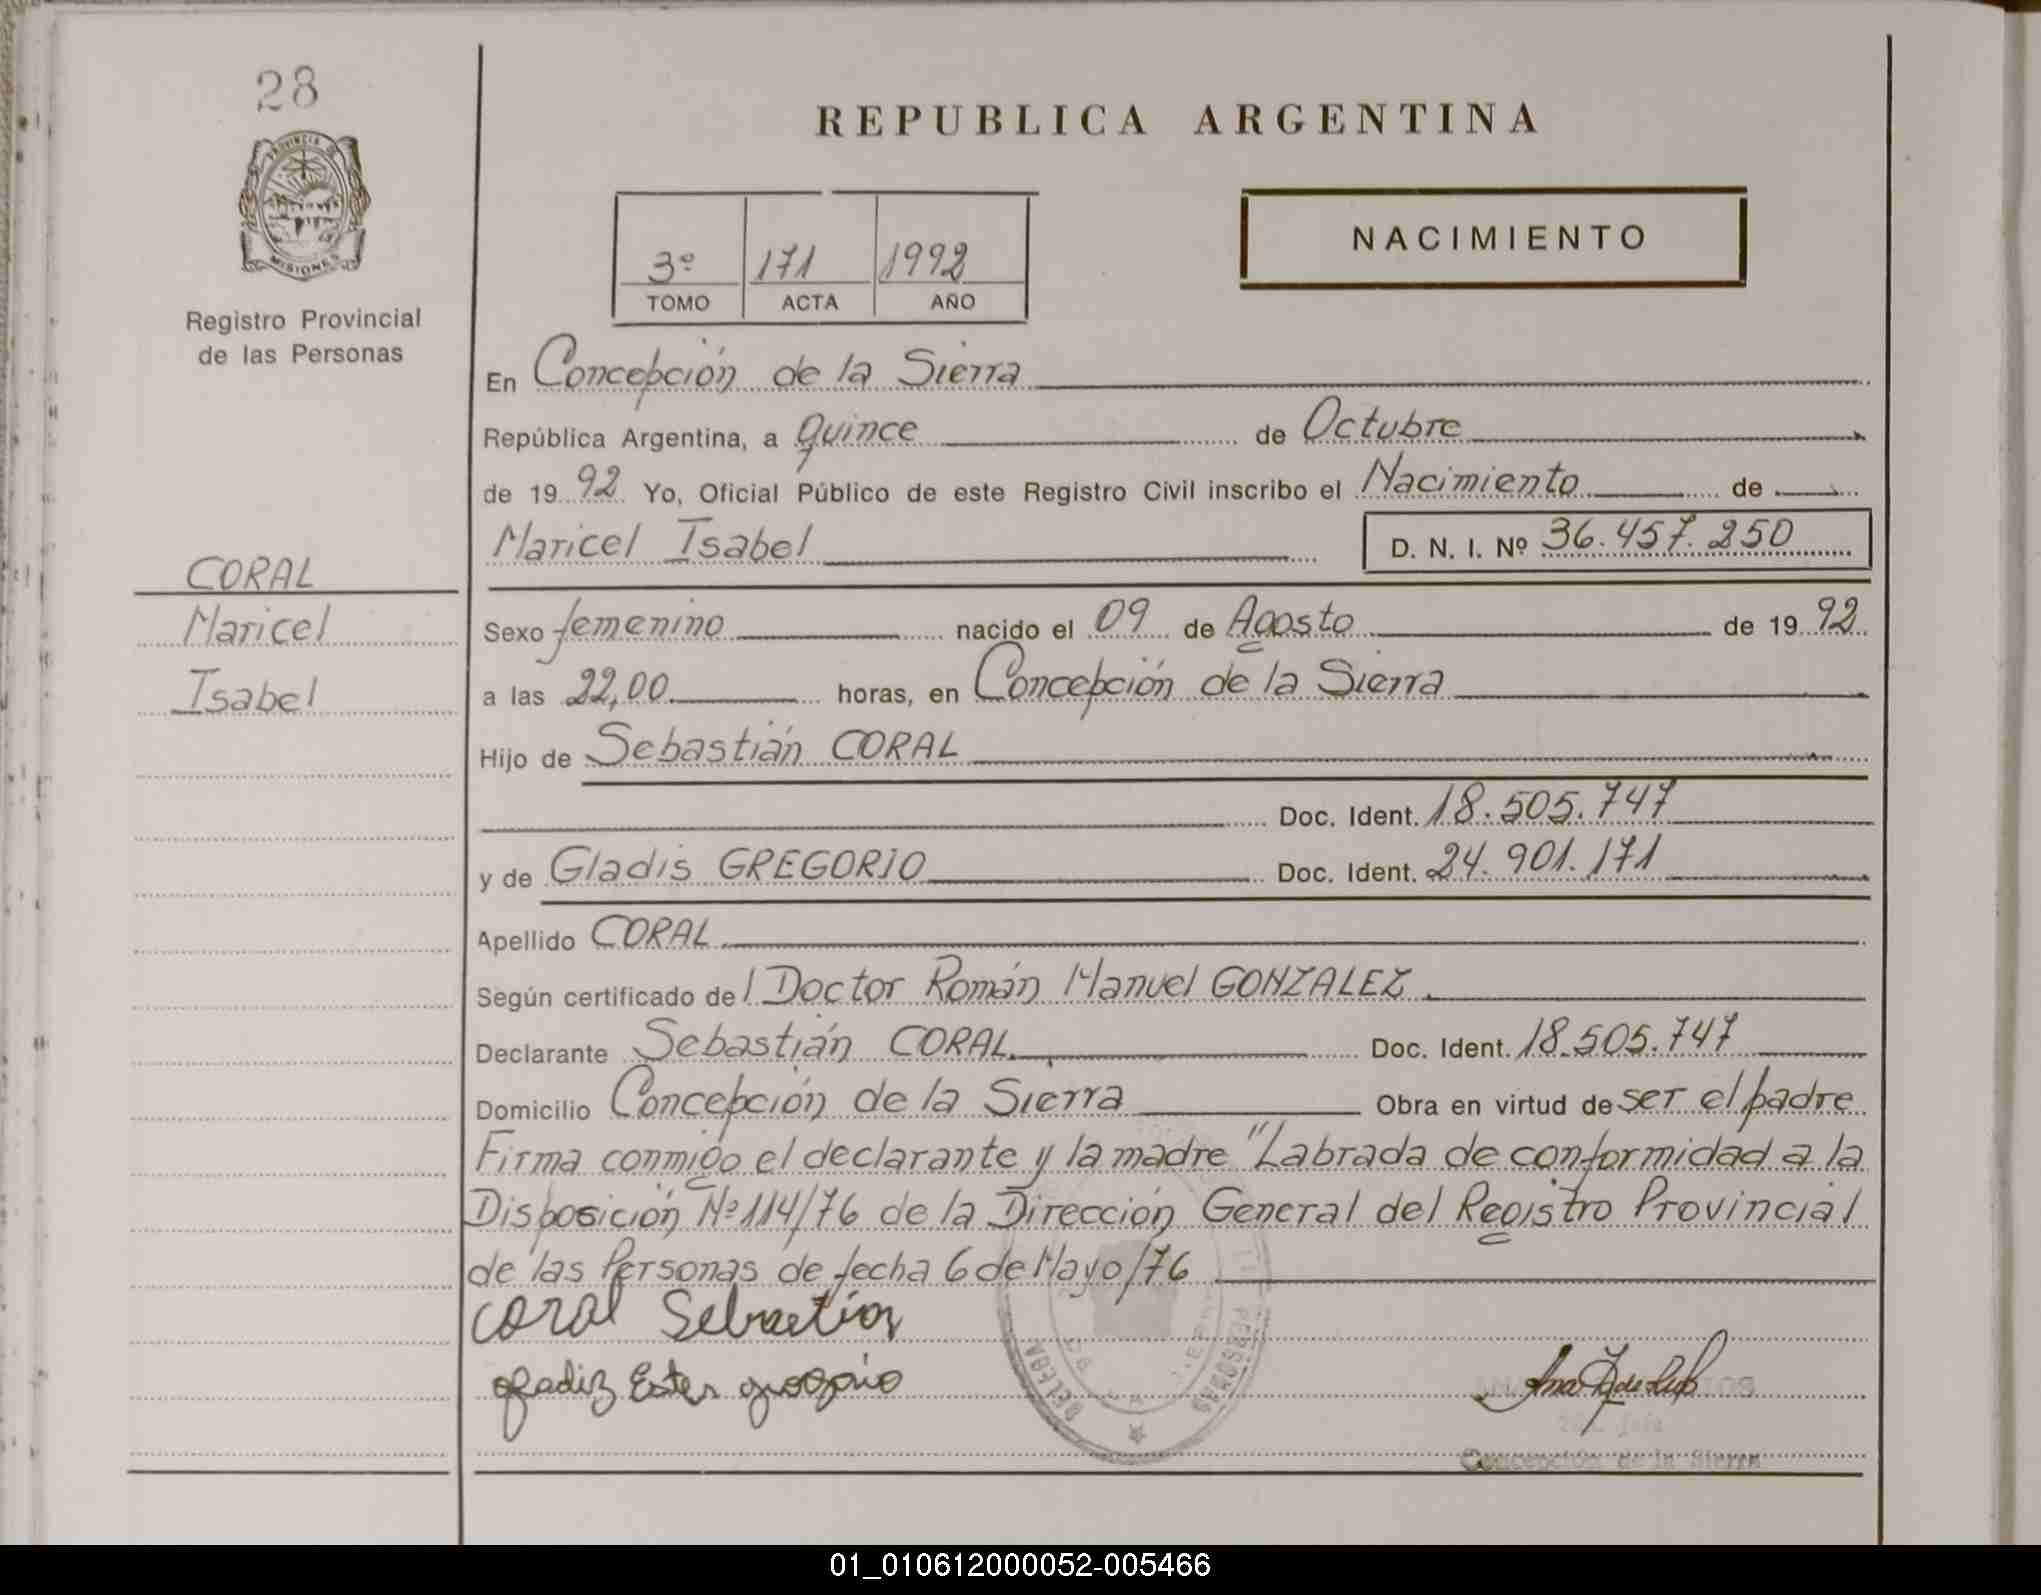 28
PROVINCIA DE
MISIONES
Registro Provincial
de las Personas
CORAL
Maricel
Isabel
REPUBLICA ARGENTINA
3º 171 1992
TOMO ACTA AÑO
NACIMIENTO
En Concepción de la Sierra
República Argentina, a quince de Octubre
de 19 92 Yo, Oficial Público de este Registro Civil inscribo el Nacimiento de
Maricel Isabel D. N. I. Nº 36.457.250
Sexo femenino nacido el 09 de Agosto de 19 92
a las 22,00 horas, en Concepción de la Sierra
Hijo de Sebastián CORAL
Doc. Ident. 18.505.747
y de Gladis GREGORIO Doc. Ident. 24.901.171
Apellido CORAL
Según certificado del Doctor Román Manuel GONZALEZ.
Declarante Sebastián CORAL Doc. Ident. 18.505.747
Domicilio Concepción de la Sierra Obra en virtud de ser el padre
Firma conmigo el declarante y la madre "Labrada de conformidad a la
Disposición Nº 114/76 de la Dirección General del Registro Provincial
de las Personas de fecha 6 de Mayo/76
Coral Sebastian
Ester
PERSONAS
Concepción de la Sierra
01_010612000052-005466